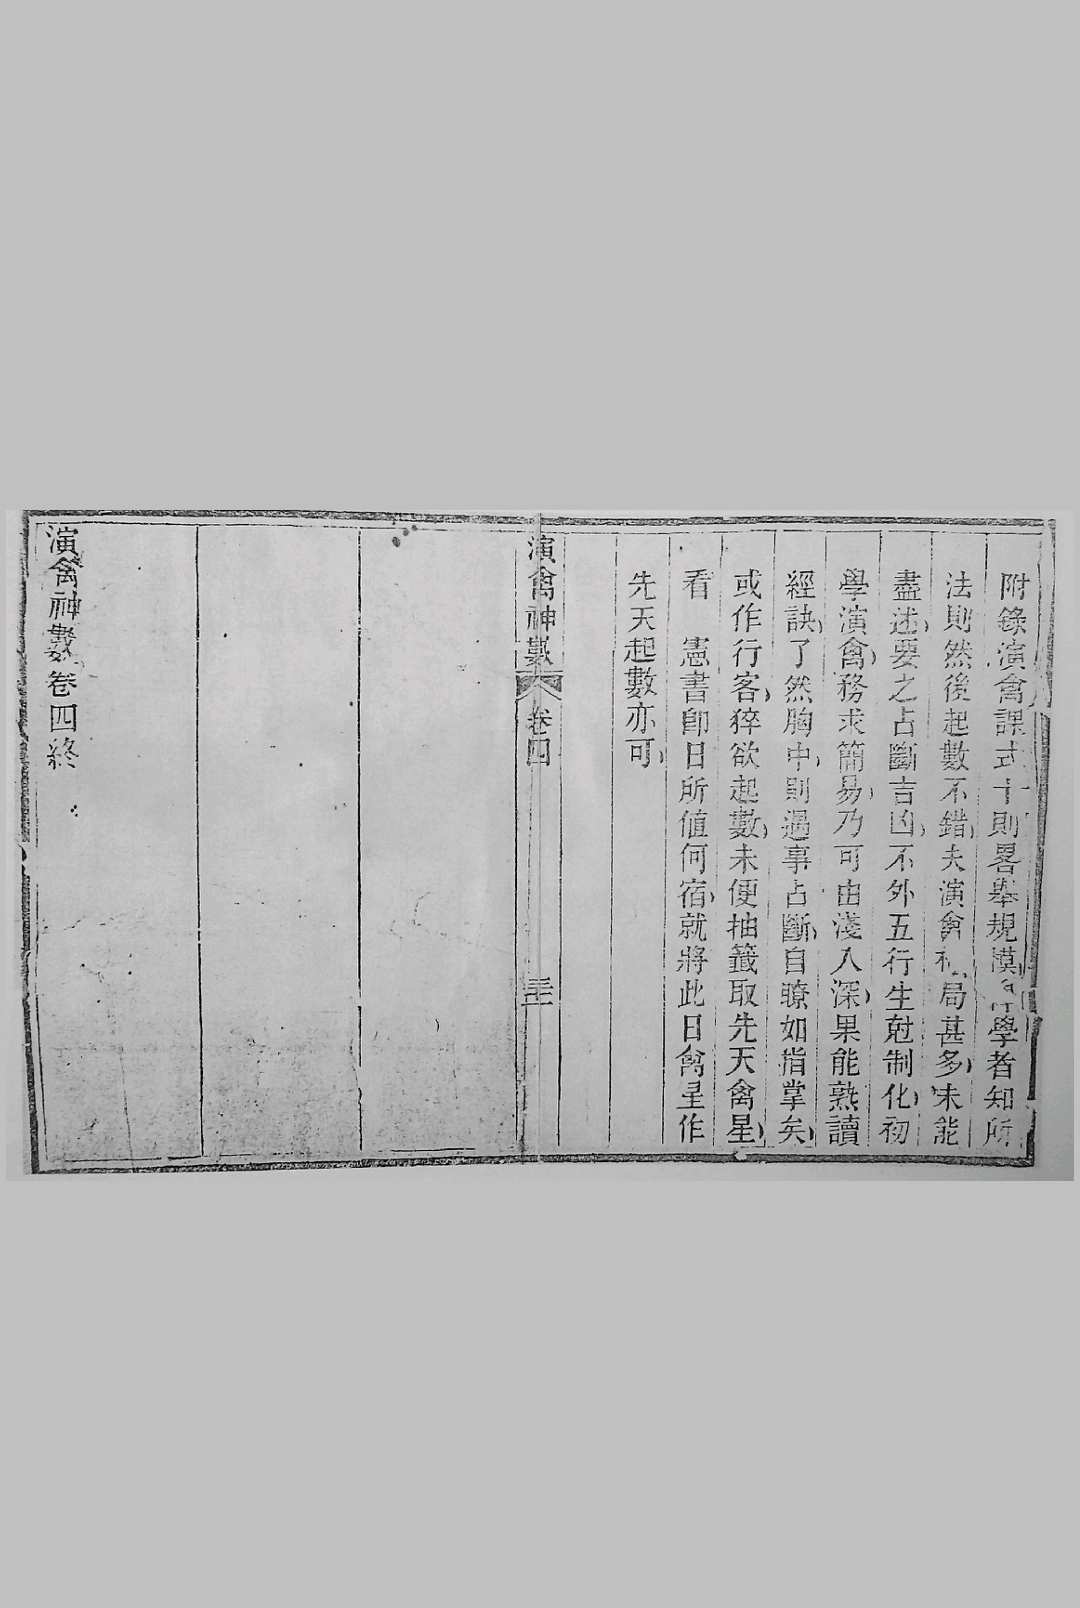 附錄演禽課式十則畧舉規模學者知所
法則然後起數不錯夫演禽局甚多未能
盡述要之占斷吉凶不外五行生尅制化初
學演禽務求簡易乃可由淺入深果能熟讀
經訣了然胸中則遇事占斷自瞭如指掌矣
或作行客猝欲起數未便抽籤取先天禽星
看　憲書卽日所值何宿就將此日禽星作
先天起數亦可
演禽神數　卷四　三十一
演禽神數卷四終